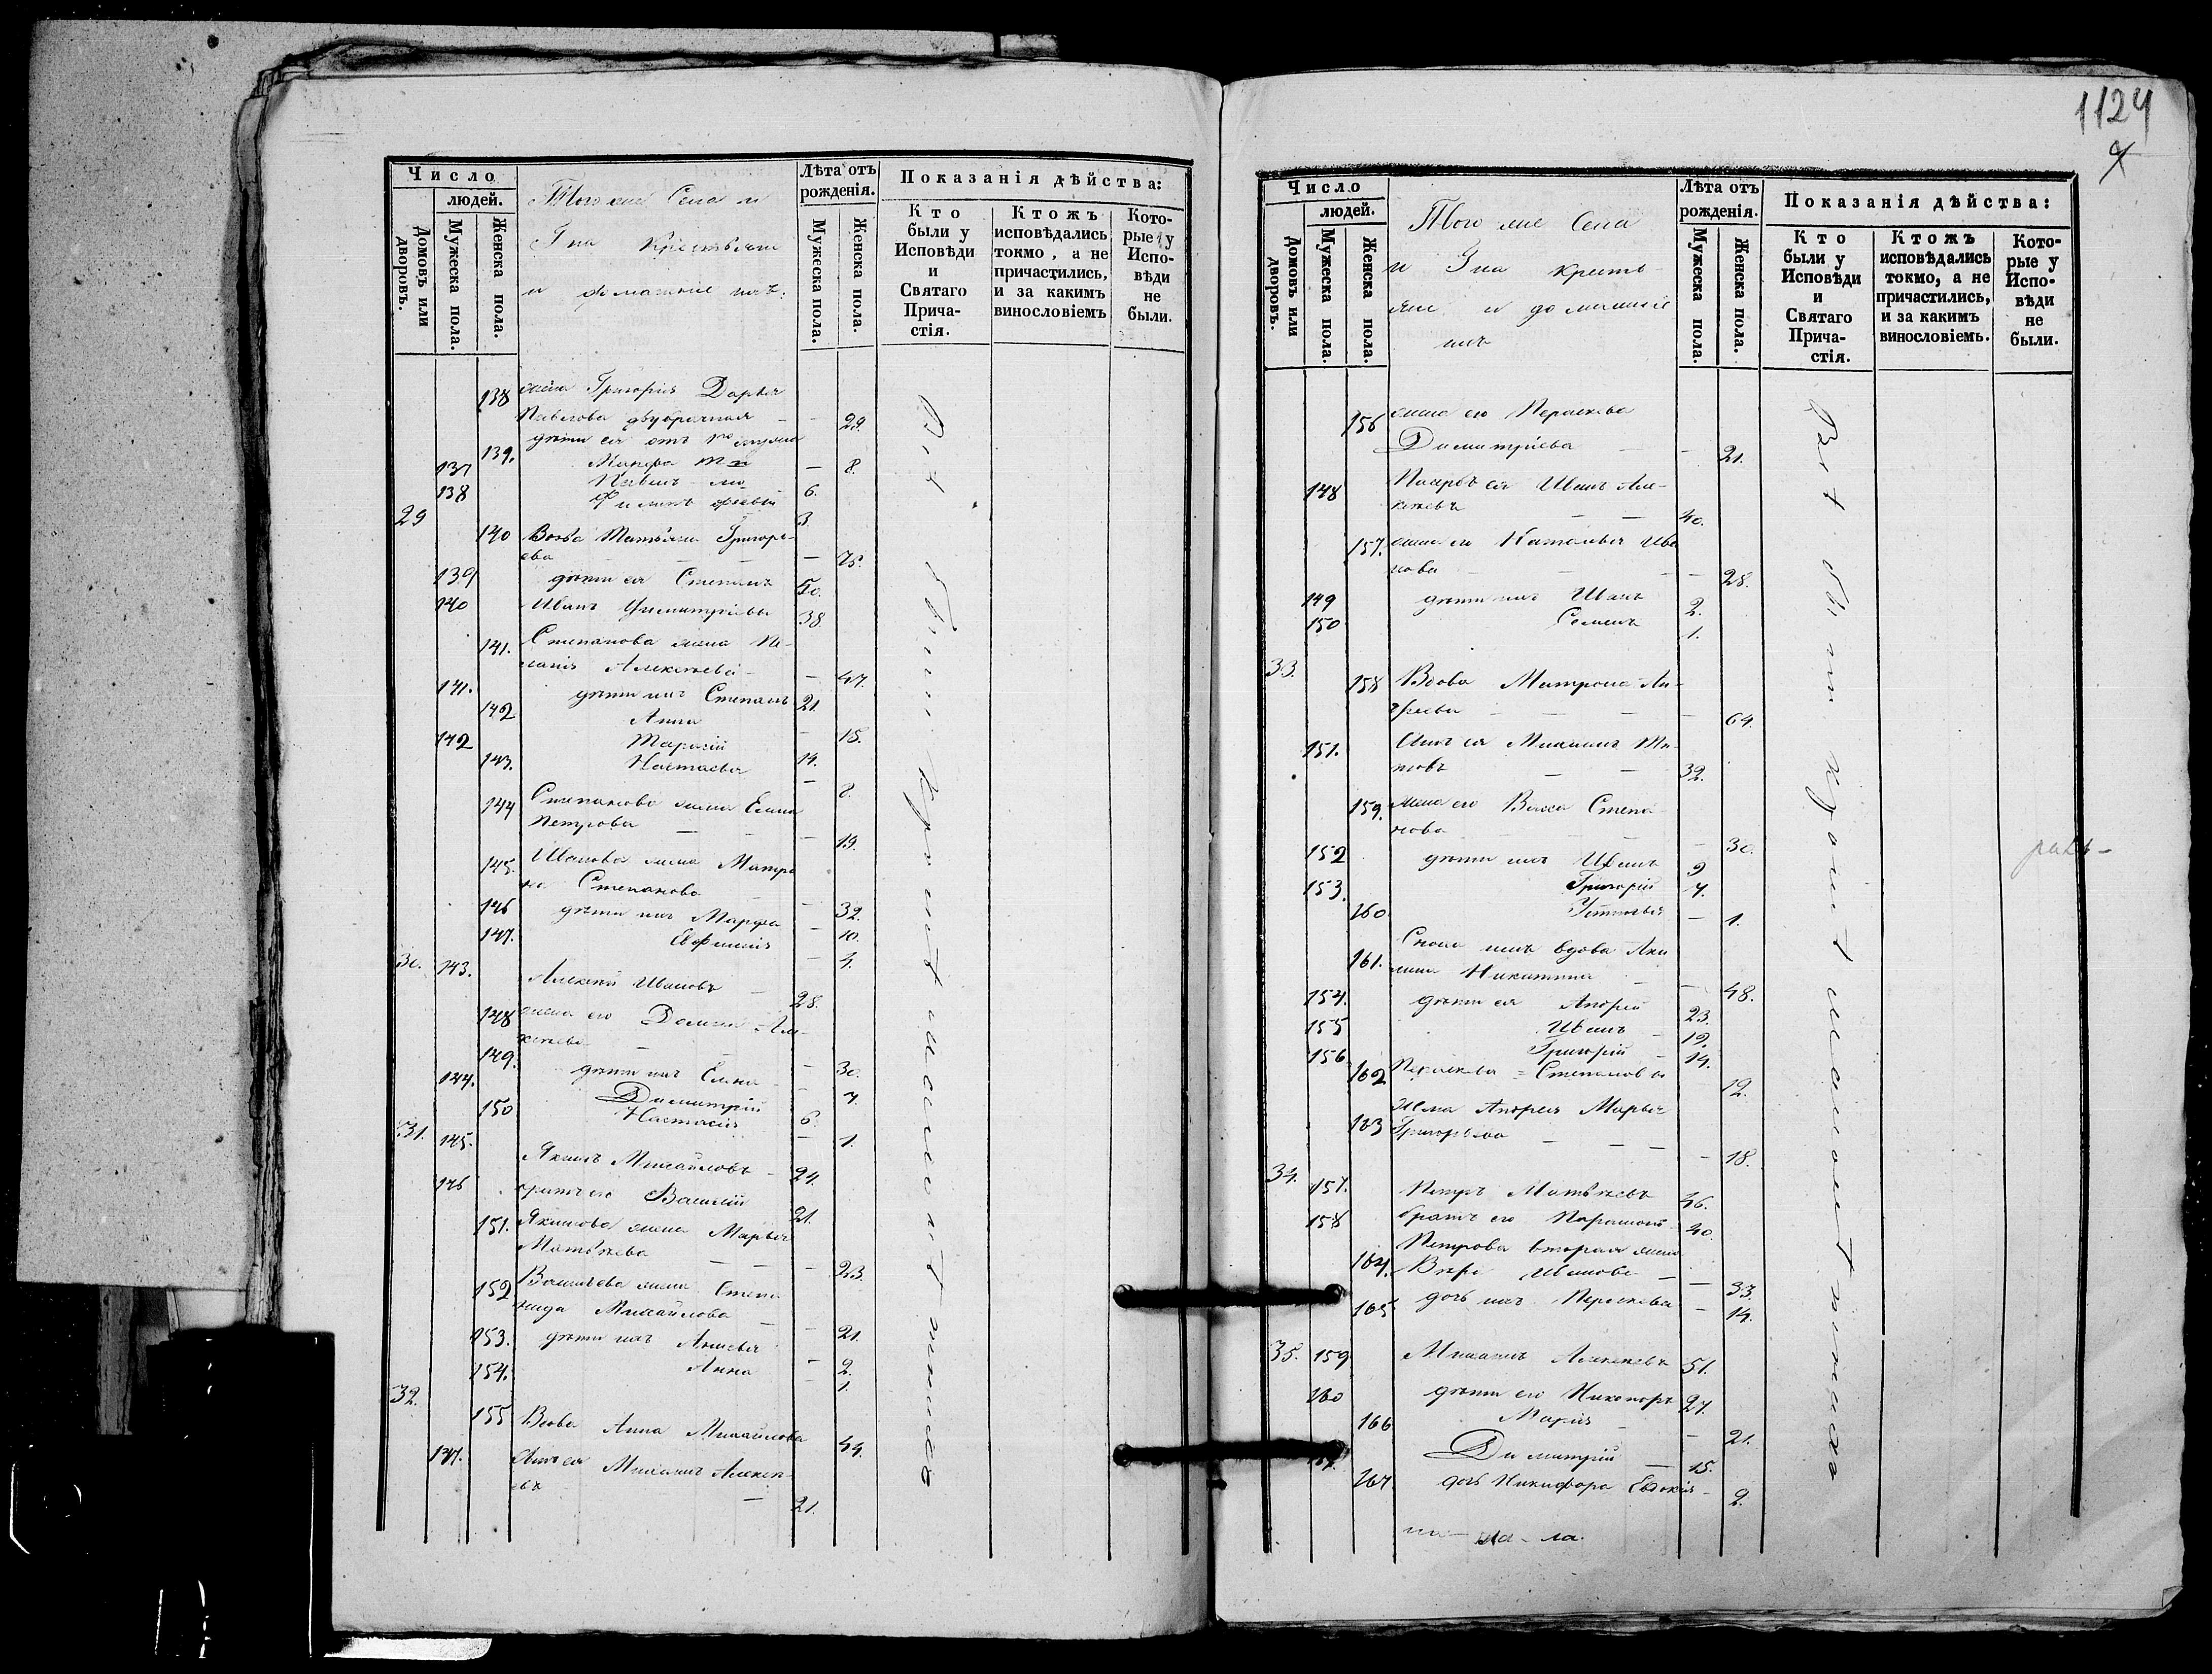 Число
людей.
Домовъ или дворовъ.
Мужеска пола.
Женска пола.
Того же Села и
Г на Крестьяне
и домашніе ихъ:
Лѣта отъ рожденія.
Мужеска пола.
Женска пола.
Показанія дѣйства:
Кто были у Исповѣди и Святаго Прича- стія.
Ктожъ исповѣдались токмо, а не причастились, и за какимъ винословіемъ
Кото- рые у Испо- вѣди не были.
138 жена Григорія Дарья
Павлова двубрачная — 29.
дѣти ея отъ 1го мужа
139. — 8.
137 Павелъ 6.
138 Филипъ 3.
29
140 Вдова Татьяна Григорь-
ева — 75.
139 дѣти ея Степанъ 50.
140 Иванъ Димитріевы 38
141. Степанова жена Пе-
лагія Алексѣева — 47.
141. дѣти ихъ Степанъ 21.
142 Анна — 15.
142 Тарасій 14.
143. Настасья — 8.
144 Степанова жена Елена
Петрова — 19.
145. Иванова жена Матро
на Степанова — 32.
146 дѣти ихъ Марфа — 10.
147. Евфимія — 4.
30. 143. Алексѣй Ивановъ — 28.
148 жена его Домна Але-
ксѣева — 30.
149. дѣти ихъ Елена — 7.
144. Димитрій 6.
150 Настасія — 1.
31. 145. Якимъ Михайловъ — 24.
146 братъ его Василій 21.
151. Якимова жена Марья
Матвѣева — 23.
152 Васильева жена Степа
нида Михайлова — 21.
153. дѣти ихъ Анисья — 2.
154. Анна — 1.
32.
155 Вдова Анна Михайлова 44.
147. Сынъ ея Михаилъ Алексѣ-
евъ — 21.
1124
Число
людей.
Домовъ или дворовъ.
Мужеска пола.
Женска пола.
Того же Села
и Г на Кресть-
яне и домашніе
ихъ
Лѣта отъ рожденія.
Мужеска пола.
Женска пола.
Показанія дѣйства:
Кто были у Исповѣди и Святаго Прича- стія.
Ктожъ исповѣдались токмо, а не причастились, и за какимъ винословіемъ.
Кото- рые у Испо- вѣди не были.
156 жена его Параскева
Димитріева — 21.
148 Иванъ Але-
ксѣевъ — 40.
157. жена его Наталья Ива
нова — 28.
149 дѣти ихъ Иванъ 2.
150 Семенъ 1.
33.
158 Вдова Матрона Ан-
дреева — 64.
151. Сынъ ея Михаилъ Ти-
товъ — 32.
159. жена его Васса Степа
нова — 30.
152 дѣти ихъ Иванъ 9
153. Григорій 7.
160 Устинья — 1.
161. Сноха ихъ вдова Аку
лина Никитина — 48.
154. дѣти ея Андрей 23.
155 Иванъ — 19.
156 Григорій — 14.
162 Параскева = Степановы 12.
163 Жена Андрея Марья
Григорьева — 18.
34.
157. Петръ Матвѣевъ 46.
158 братъ его Парамонъ 40.
Петрова вторая жена
164. Вѣра Иванова — 33.
165 дочь ихъ Параскева — 14.
35. 159 Михаилъ Алексѣевъ 51.
160 дѣти его Никифоръ 27.
166 Марія — 21.
Димитрій — 15.
167 дочь Никифора Евдокія — 2.